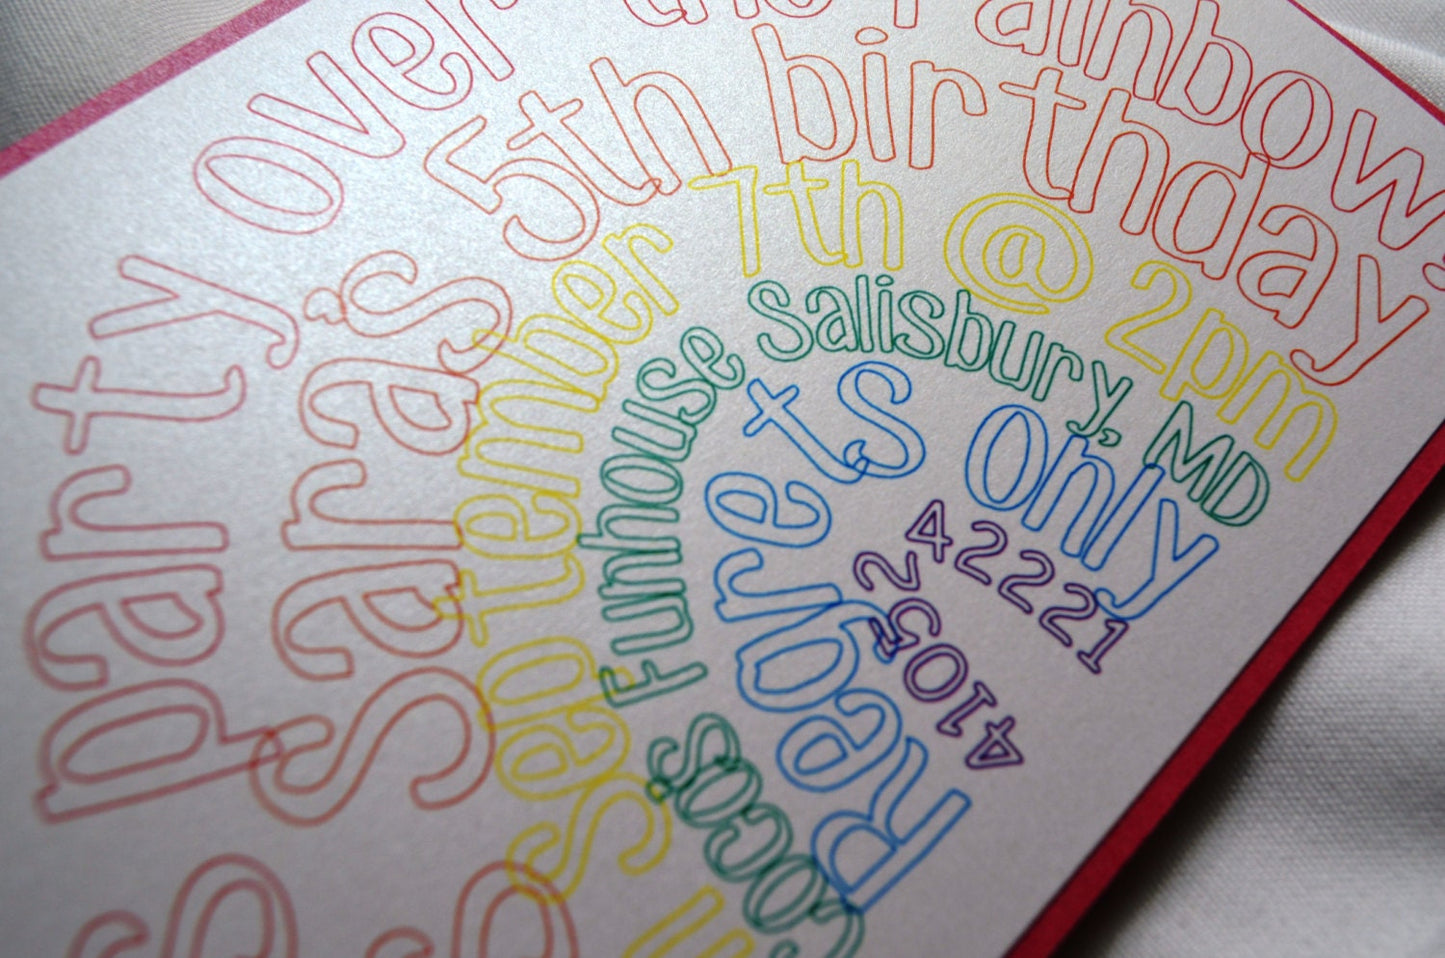 party over the rainbow,
sara's 5th birthday
September 7th @ 2pm
Coco's Funhouse Salisbury, MD
Regrets only
4105242221